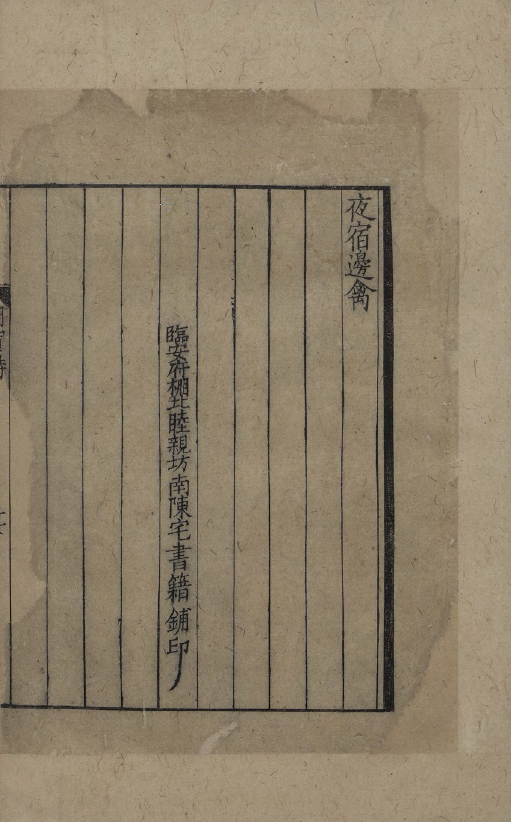 夜宿邊禽
臨安府棚北睦親坊南陳宅書籍鋪印